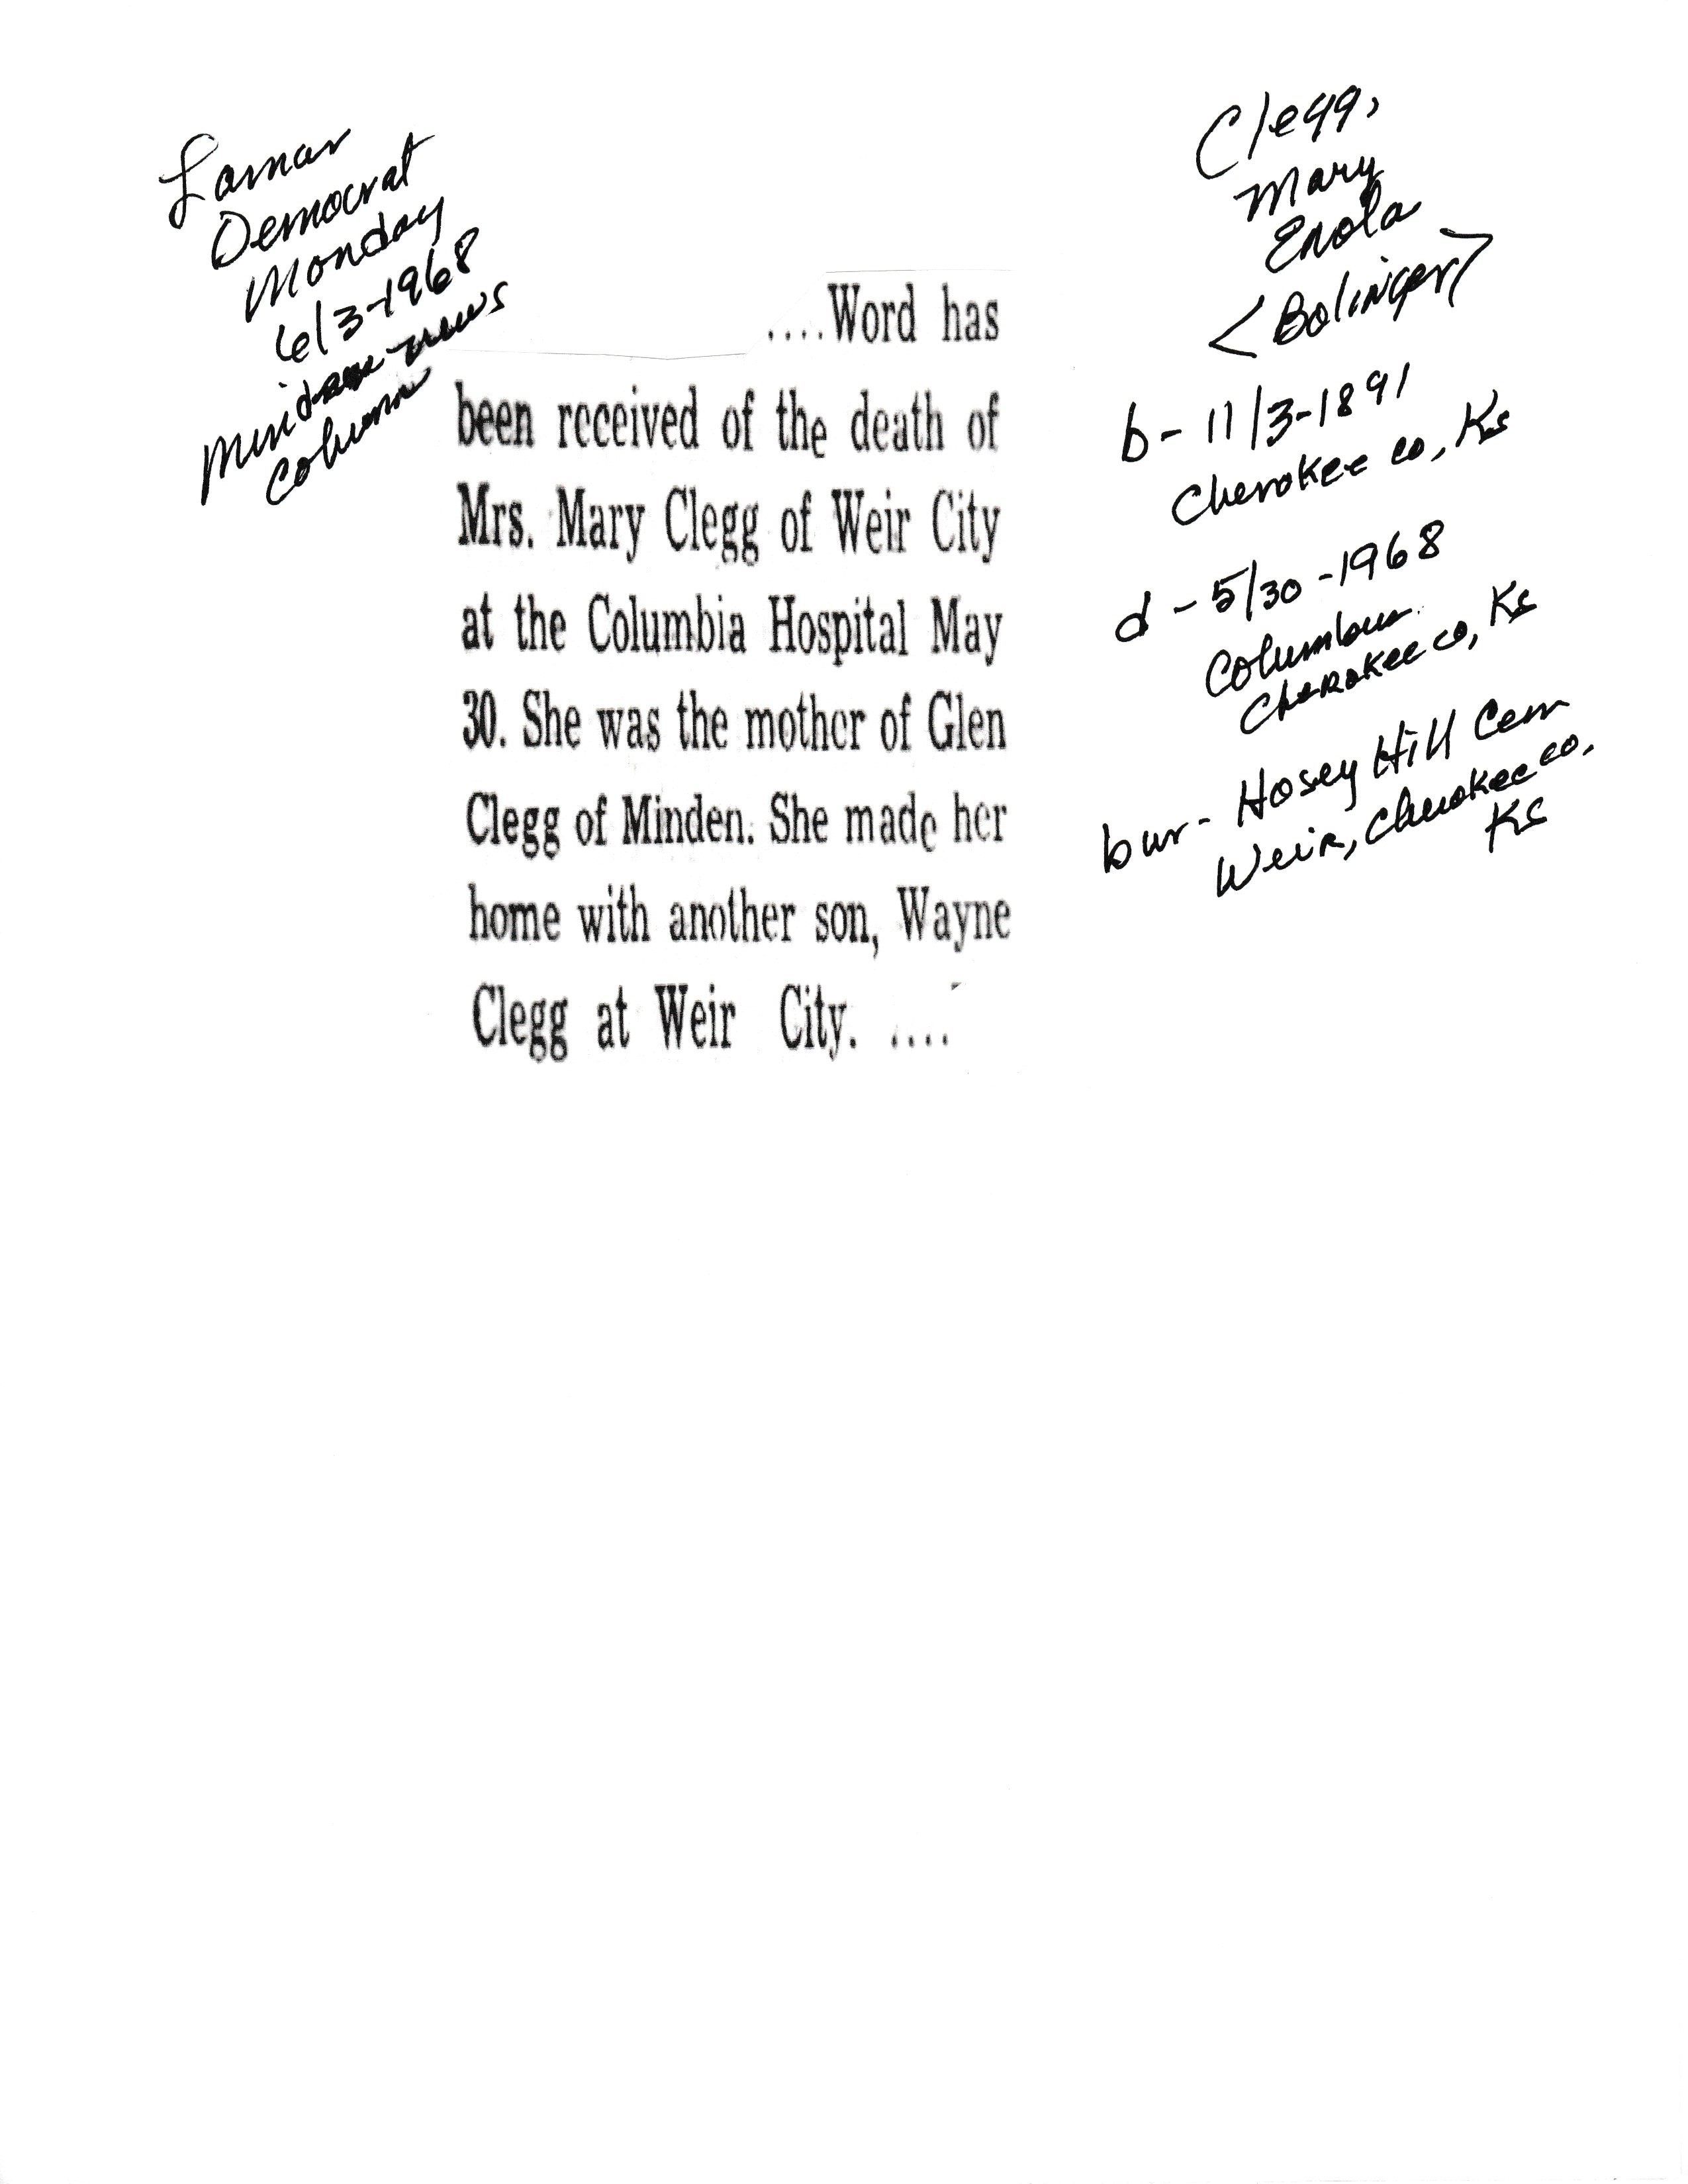 Lamar
Democrat
Monday
6/3-1968
news
Column
....Word has
been received of the death of
Mrs. Mary Clegg of Weir City
at the Columbia Hospital May
30. She was the mother of Glen
Clegg of Minden. She made her
home with another son, Wayne
Clegg at Weir City. ....
Clegg,
Mary
Enola
<Bolinger>
b- 11/3-1891
Cherokee co, Ks
d - 5/30-1968
Columbus
Cherokee co, Ks
bur- Hosey Hill Cem
Weir, Cherokee co.
Ks